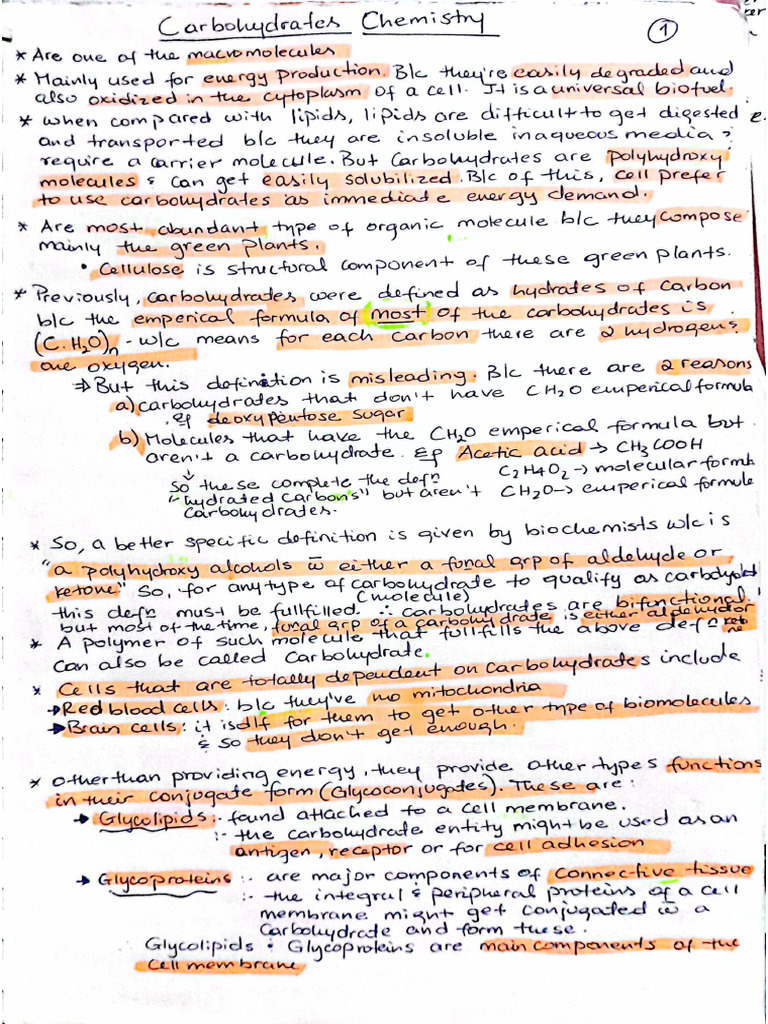 Carbohydrates Chemistry
1
* Are one of the macromolecules
* Mainly used for energy production. B/c they're easily degraded and
also oxidized in the cytoplasm of a cell. It is a universal biofuel.
* when compared with lipids, lipids are difficult to get digested
and transported b/c they are insoluble in aqueous media &
require a carrier molecule. But Carbohydrates are polyhydroxy
molecules & can get easily solubilized. B/c of this, cell prefer
to use carbohydrates as immediate energy demand.
* Are most abundant type of organic molecule b/c they compose
mainly the green plants.
• Cellulose is structural component of these green plants.
* Previously, carbohydrates were defined as hydrates of Carbon
b/c the emperical formula of (most) of the carbohydrates is
(C.H2O)n - w/c means for each Carbon there are 2 hydrogens &
one oxygen.
⇒ But this definition is misleading. B/c there are 2 reasons
a) carbohydrates that don't have CH2O emperical formula
eg deoxy pentose sugar
b) Molecules that have the CH2O emperical formula but
aren't a carbohydrate. eg Acetic acid → CH3COOH
C2H4O2 → molecular formula
so these complete the defn
"hydrated carbons" but aren't CH2O → emperical formula
Carbohydrates.
* So, a better specific definition is given by biochemists w/c is
"a polyhydroxy alcohols w̄ either a fxnal grp of aldehyde or
ketone" So, for any type of carbohydrate to qualify as carbohydrate
(molecule)
this defn must be fullfilled. ∴ Carbohydrates are bifunctional.
but most of the time, fxnal grp of a carbohydrate is either aldehyde or
ketone
* A polymer of such molecule that fullfills the above defn
can also be called Carbohydrate.
* Cells that are totally dependent on Carbohydrates include
→ Red blood cells: b/c they've no mitochondria
→ Brain cells: it is d/f for them to get other type of biomolecules
& so they don't get enough.
* Other than providing energy, they provide other types functions
in their conjugate form (Glycoconjugates). These are:
→ Glycolipids :- found attached to a cell membrane.
:- the carbohydrate entity might be used as an
antigen, receptor or for cell adhesion
→ Glycoproteins :- are major components of Connective tissue
:- the integral & peripheral proteins of a cell
membrane might get conjugated w̄ a
Carbohydrate and form these.
Glycolipids & Glycoproteins are main components of the
cell membrane